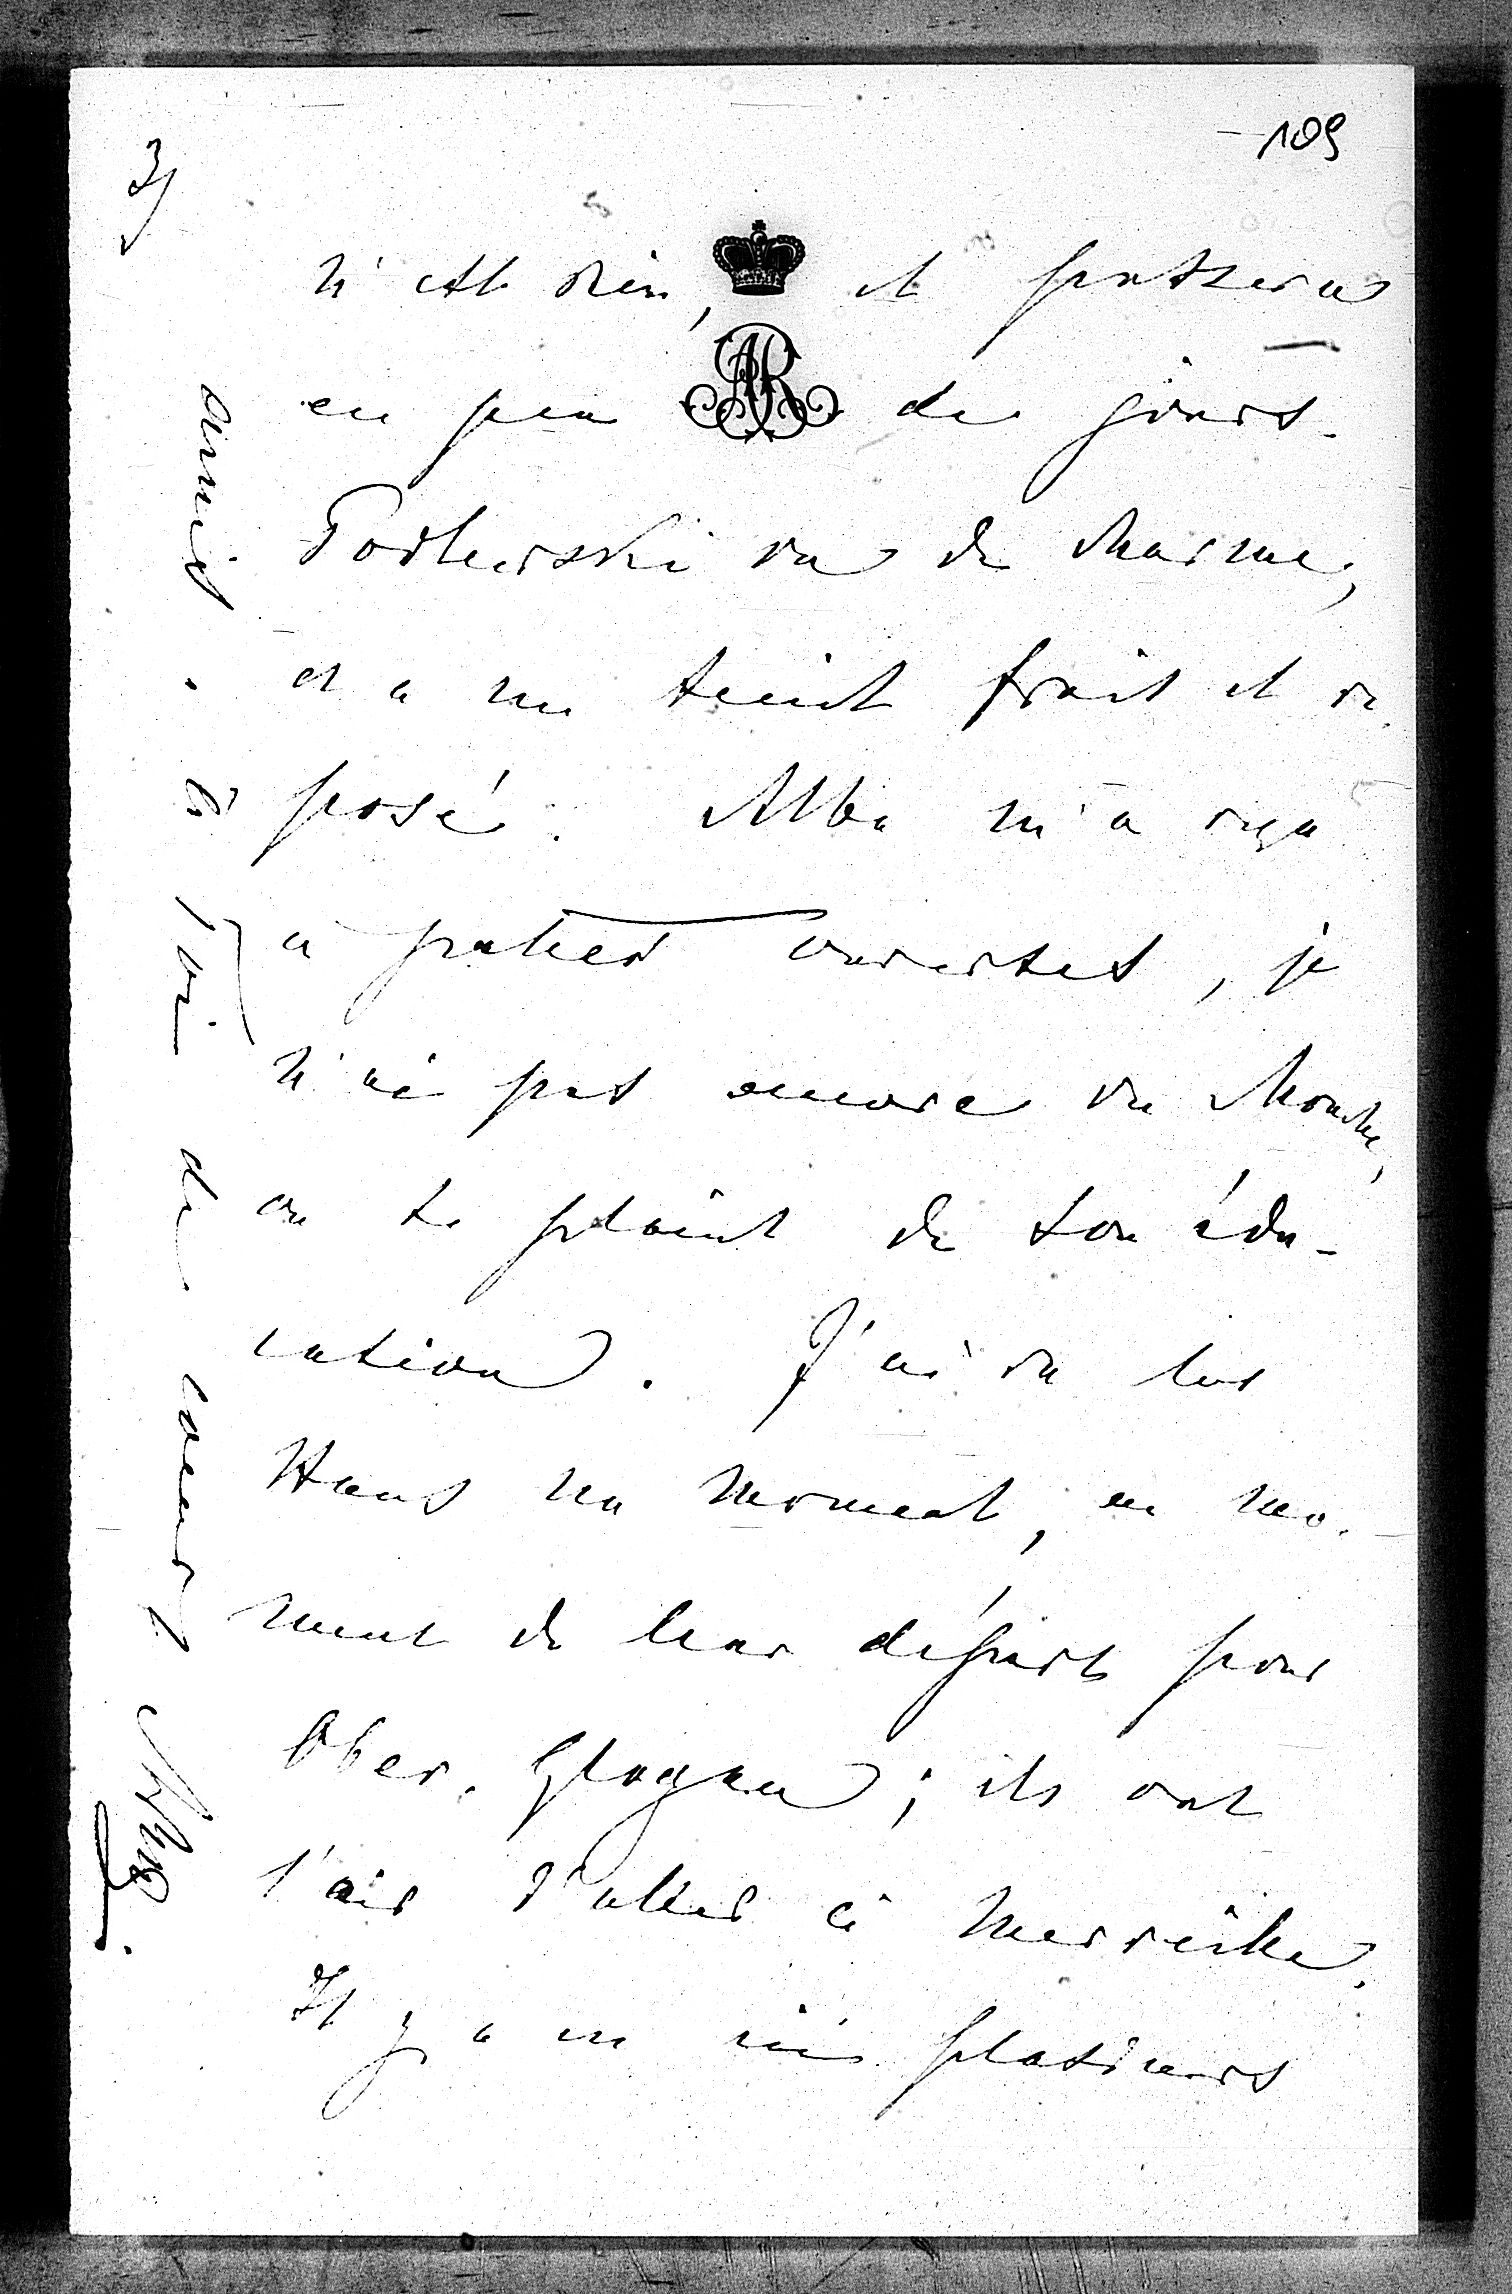 109
3)
n'est rien, et passera
en peu de jours.
Podlewski va de même,
et a un teint frais et re
posé. Alba m'a reçu
à pattes ouvertes, je
n'ai pas encore vu Mouche,
on se plaint de son édu-
cation. J'ai vu les
Hans un moment, au mo-
ment de leur départ pour
Ober-Glogau; ils ont
l'air d'aller à merveille.
Il y a eu ici plusieurs
à Toi de coeur